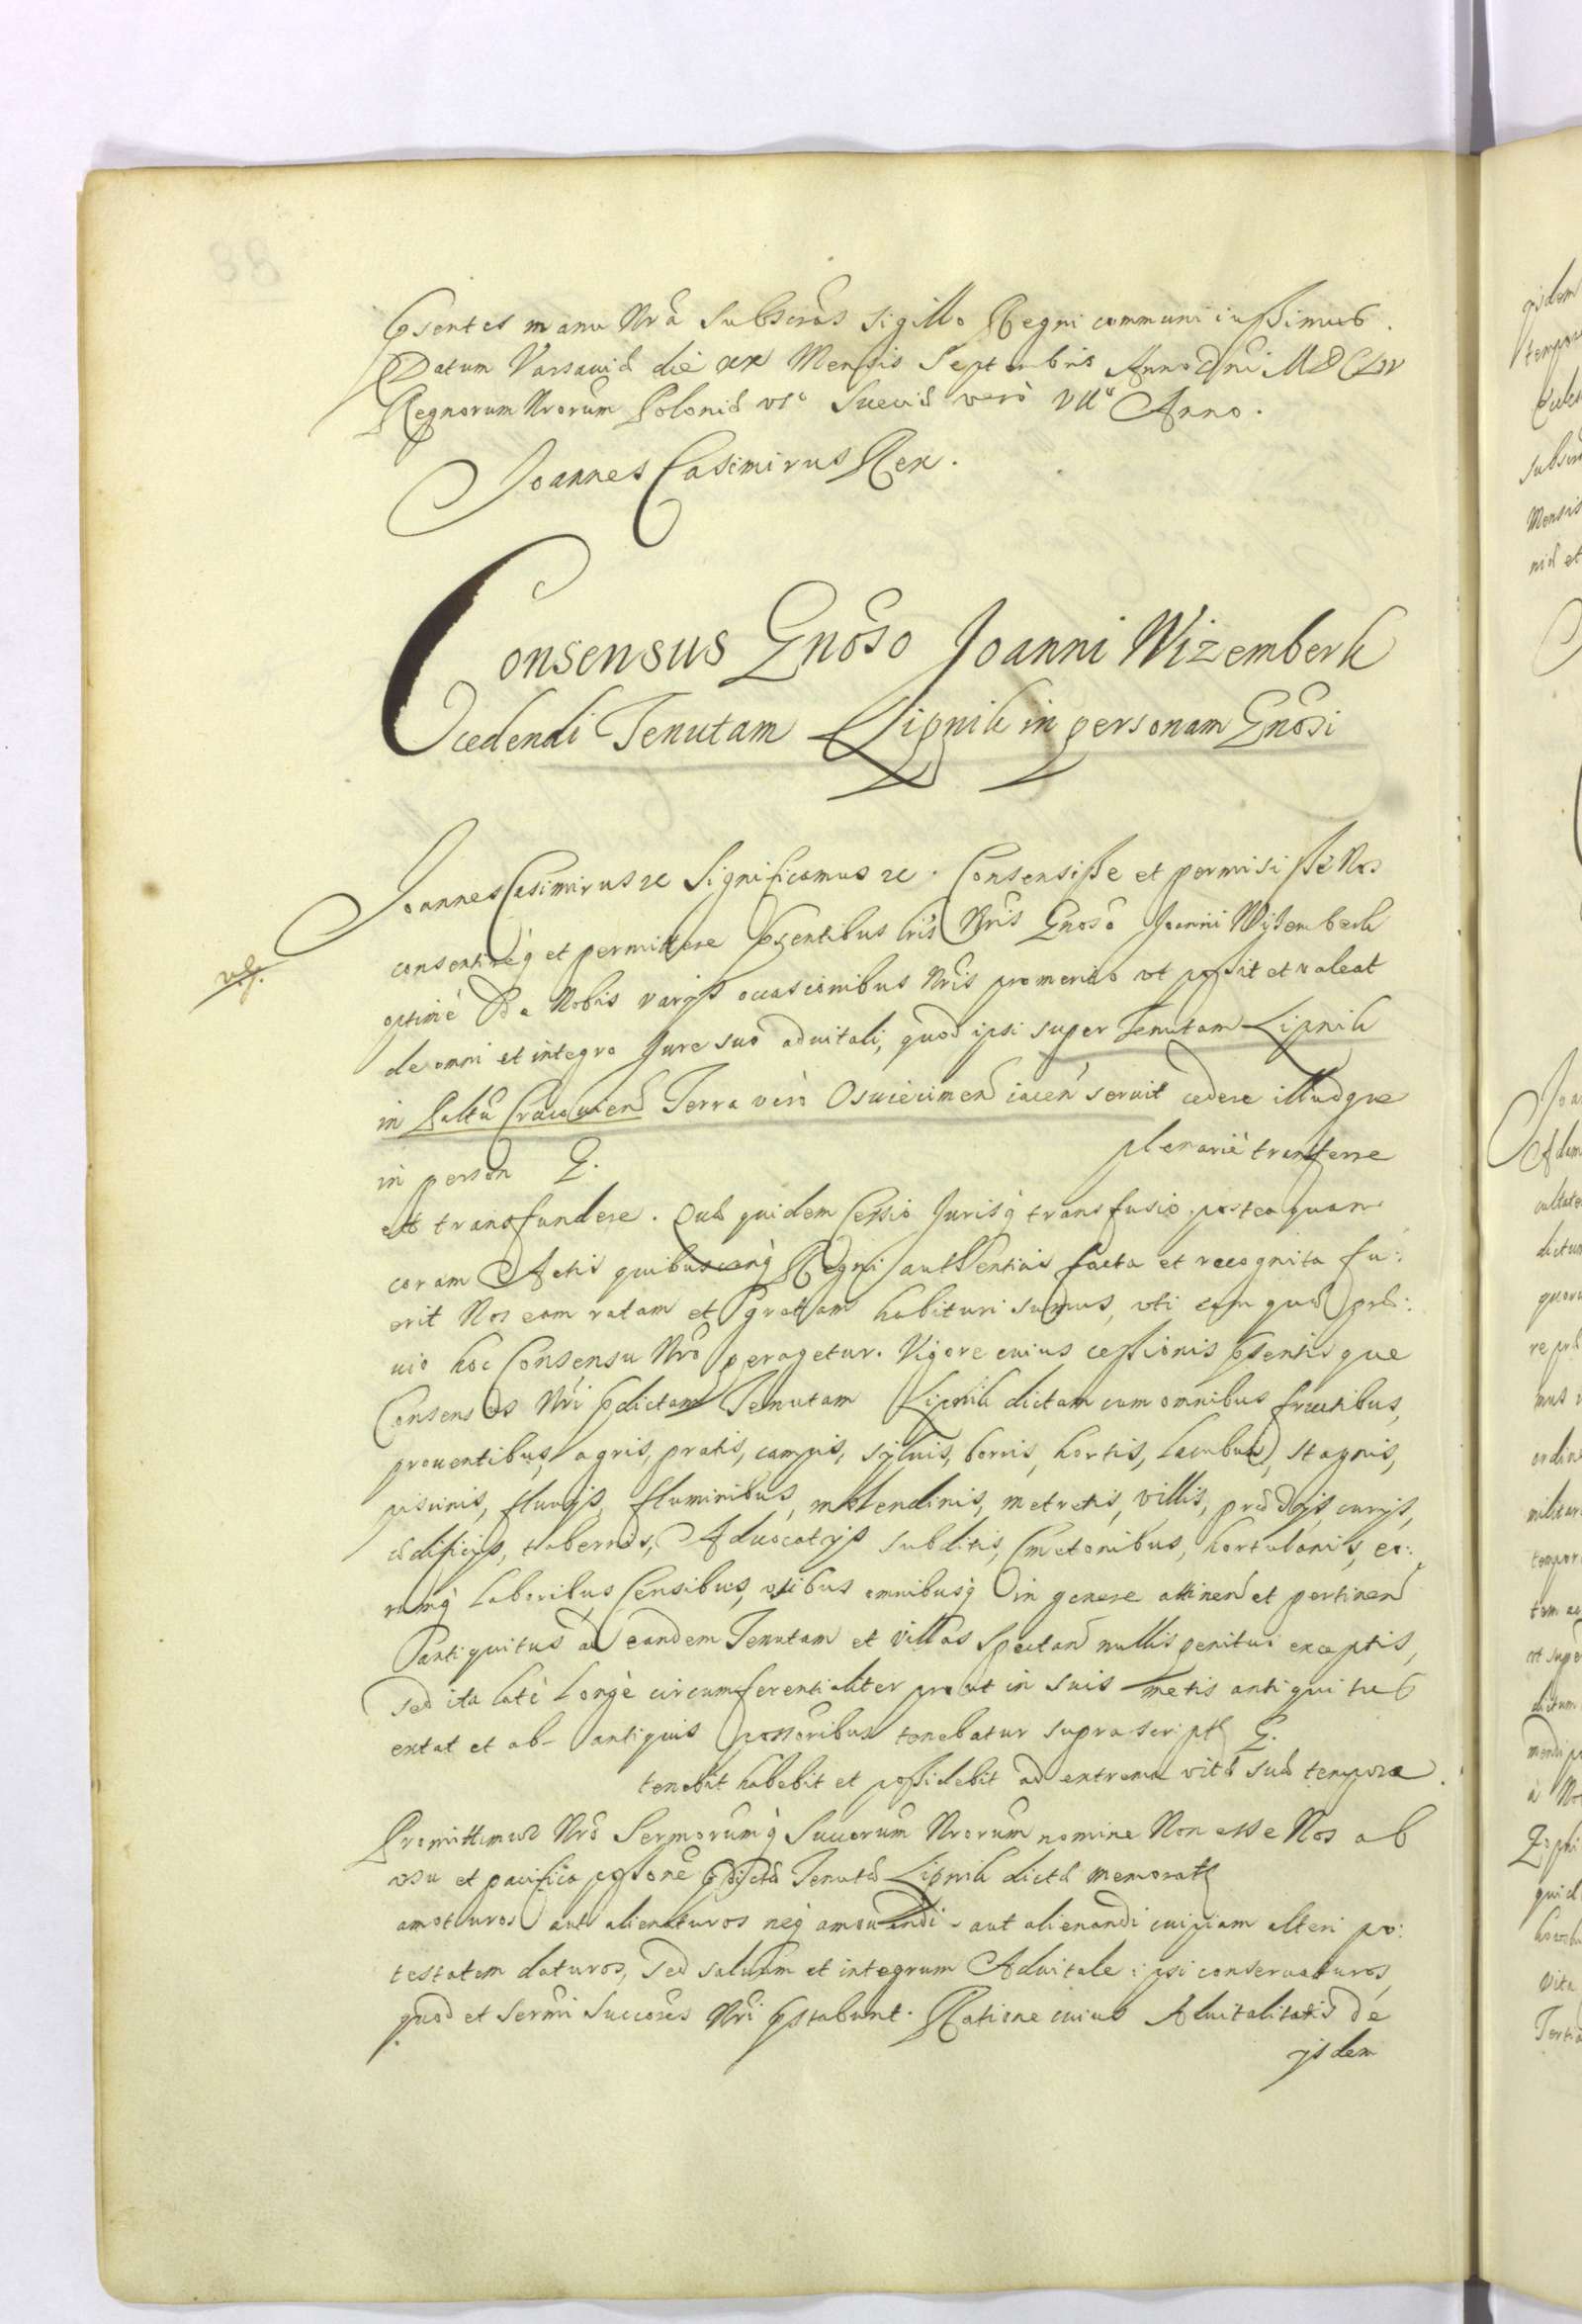 Psentes manu Nrâ Subscras sigillo Regni communi iussimus.
Datum Varsaviæ die xx Mensis Septembris Anno Dni MDCLIV
Regnorum Nrorum Poloniæ VIo Sueciæ verò VIIo Anno.
Joannes Casimirus Rex.
Consensus Gnoso Joanni Wizemberk
Cedendi Tenutam Lipnik in personam Gnosi
Joannes Casimirus &c Significamus &c. Consensisse et permisisse Nos
consentireq et permittere psentibus lris Nris Gnoso Joanni Wyzemberk
optimè De Nobis varys occasionibus Nris promerito vt possit et valeat
de omni et integro Jure suo advitali, quod ipsi super Tenutam Lipnik
in Paltu Cracovien Terra verò Osviecimen iacen servit cedere illudque
in person G. plenariè transferre
et transfundere. Quæ quidem Cessio Jurisq transfusio posteaquam
coram Actis quibuscunq Regni authenticis facta et recognita fu:
erit Nos eam ratam et gratam habituri sumus, vti eam quæ præ:
vio hoc Consensu Nro peragetur. Vigore cuius cessionis psentisque
Consensus Nri pdictam Tenutam Lipnik dictam cum omnibus fructibus,
proventibus, agris, pratis, campis, sylvis, borris, hortis, lacubus, stagnis,
piscinis, fluvys, fluminibus, molendinis, metretis, villis, prædys, curys,
ædificys, tabernis, Advocatys subditis, Cmetonibus, hortulanis, eo:
rumq laboribus Censibus, vsibus omnibusq in genere attinen et pertinen
antiquitus ad eandem Tenutam et villas spectan nullis penitus exceptis,
sed ita latè longè circumferentialiter prout in suis metis antiquitus
extat et ab antiquis possoribus tenebatur suprascript G.
tenebit habebit et possidebit ad extrema vitæ suæ tempora.
Promittimus Nro Sermorumq Succorum Nrorum nomine Non esse Nos ab
vsu et pacifica possone pdictæ Tenutæ Lipnik dictæ memorat
amoturos aut alienaturos neq amovendi aut alienandi cuipiam alteri po:
testatem daturos, sed salvum et integrum Advitale ipsi conservaturos,
quod et Sermi Succores Nri pstabunt. Ratione cuius Advitalitatis de
ysdem